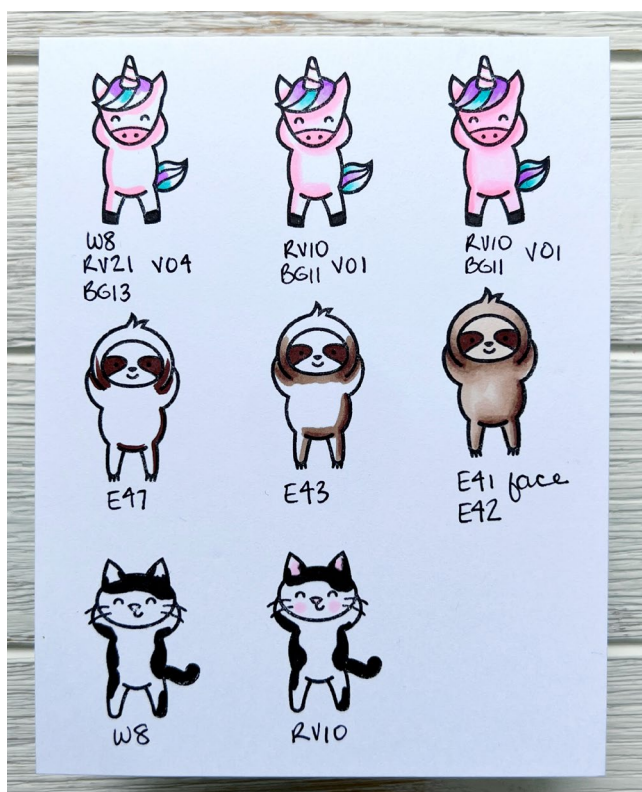 W8
RV21 V04
BG13
RV10
BG11 V01
RV10
BG11 V01
E47
E43
E41 face
E42
W8
RV10